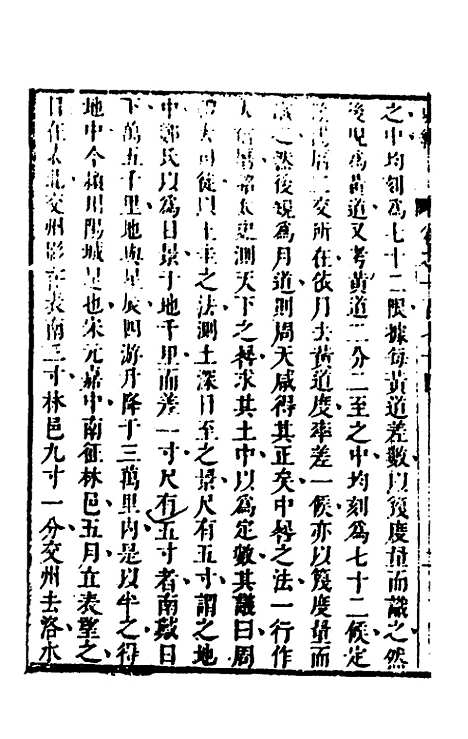 之中均刻爲七十二限據每黃道差數以篾度量而識之然
後見爲黃道又考黃道二分二至之中均刻爲七十二候定
曆二交所在依月去黃道度率差一候亦以篾度量而
識之然後規爲月道則周天咸得其正矣中晷之法一行作
大衍曆詔太史測天下之晷求其土中以爲定數其議曰周
大司徒以土圭之法測土深日至之景尺有五寸謂之地
中鄭氏以爲日景寸地千里而差一寸尺有五寸者南戴日
下萬五千里地與星辰四游升降于三萬里內是以半之得
地中今潁川陽城是也宋元嘉中南征林邑五月立表望之
日在表北交州影在表南三寸林邑九寸一分交州去洛水